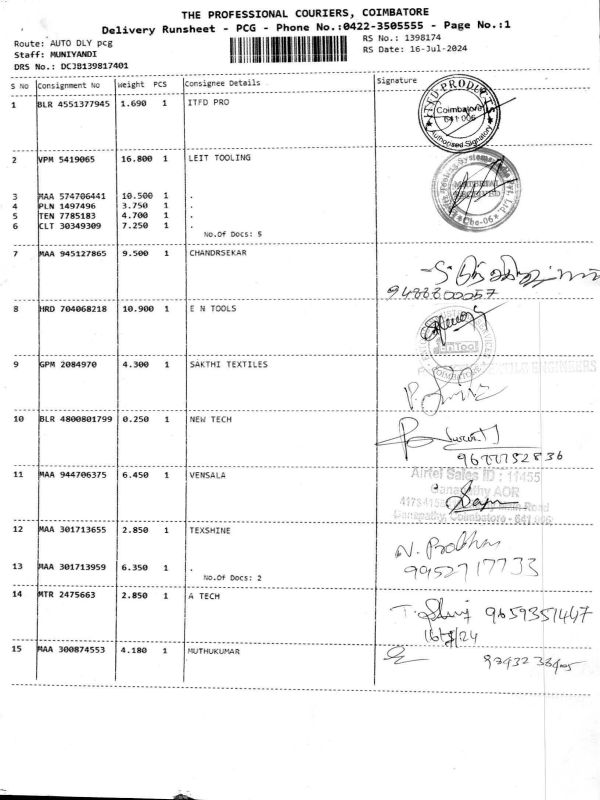 THE PROFESSIONAL COURIERS, COIMBATORE
Delivery Runsheet - PCG - Phone No.:0422-3505555 - Page No.:1
Route: AUTO DLY pcg
RS No.: 1398174
Staff: MUNIYANDI
RS Date: 16-Jul-2024
DRS No.: DCJB139817401
S No Consignment No Weight PCS Consignee Details Signature
1 BLR 4551377945 1.690 1 ITFD PRO
ITFD PRODUCTS
Coimbatore
641 006
Authorised Signatory
2 VPM 5419065 16.800 1 LEIT TOOLING
MATERIAL
RECEIVED
Cbe-06
3 MAA 574706441 10.500 1 .
4 PLN 1497496 3.750 1 .
5 TEN 7785183 4.700 1 .
6 CLT 30349309 7.250 1 .
No.Of Docs: 5
7 MAA 945127865 9.500 1 CHANDRSEKAR
9488800057
8 HRD 704068218 10.900 1 E N TOOLS
9 GPM 2084970 4.300 1 SAKTHI TEXTILES
ENGINEERS
COIMBATORE
10 BLR 4800801799 0.250 1 NEW TECH
11 MAA 944706375 6.450 1 VENSALA
Airtel Sales ID : 11455
Ganapathy AOR
Main Road
Ganapathy, Coimbatore - 641 006
12 MAA 301713655 2.850 1 TEXSHINE
N. Prabhu
9952717733
13 MAA 301713959 6.350 1 .
No.Of Docs: 2
14 MTR 2475663 2.850 1 A TECH
9659351447
16/7/24
15 MAA 300874553 4.180 1 MUTHUKUMAR